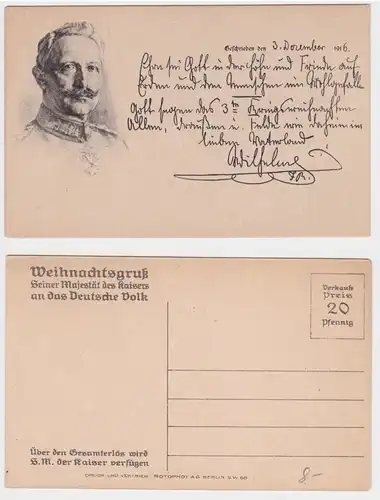 Geschrieben den 3. Dezember 1916.
Ehre sei Gott in der Höhe und Friede auf
Erden und den Menschen ein Wohlgefallen
Gott segne das 3te Kriegsweihnachten
Allen, draußen i. Felde wie daheim im
lieben Vaterland
Wilhelm
I.R.
Weihnachtsgruß
Seiner Majestät des Kaisers
an das Deutsche Volk
Verkaufs
Preis
20
Pfennig
Über den Gesamterlös wird
S.M. der Kaiser verfügen
DRUCK UND VERTRIEB ROTOPHOT AG BERLIN S.W. 68
8-